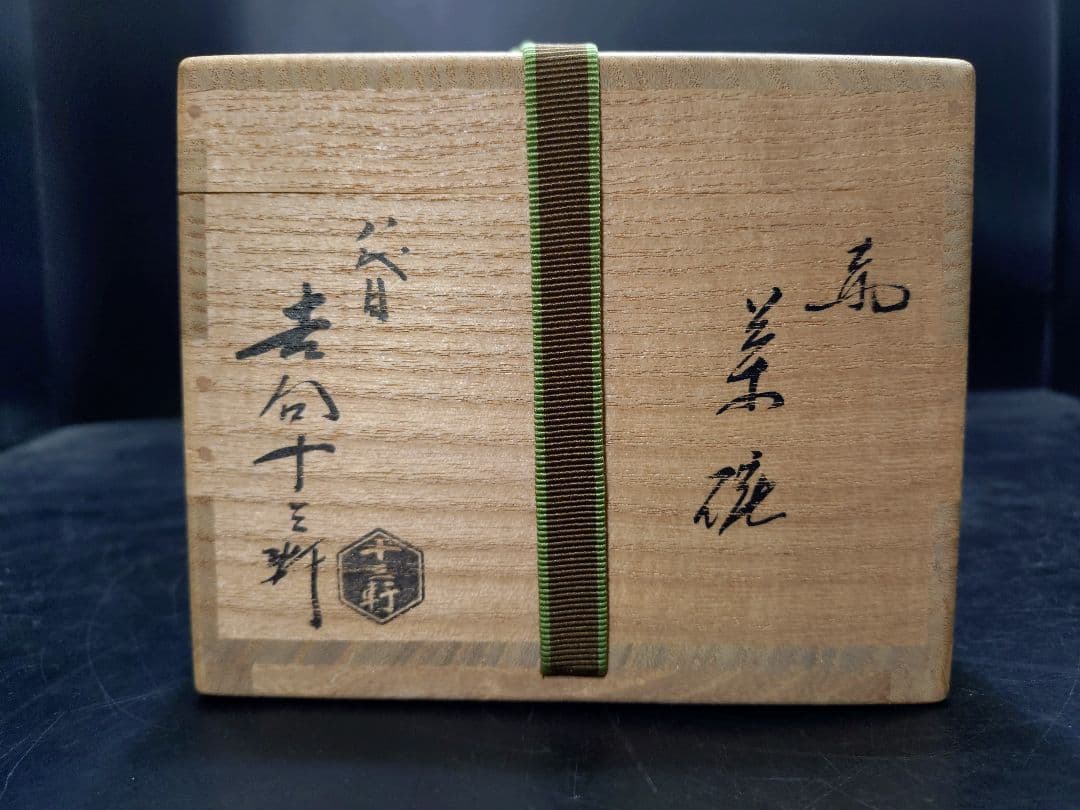 茶碗
八代目
吉向十三軒
十三軒